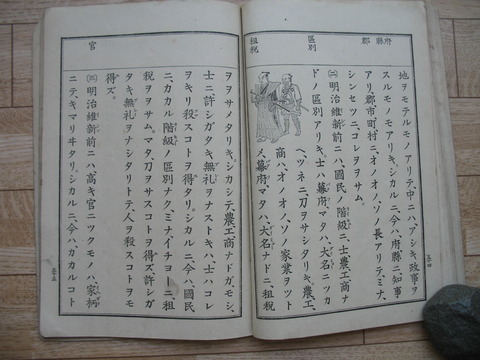 府縣
郡
區別
租税
地ヲモテルモノアリテ、中ニハ、アシキ政事ヲ
スルモノモアリキ。シカルニ、今ハ、府縣ニ知事
アリ、郡市町村ニ、オノオノ、ソノ長アリテ、ミナ、
シンセツニ、コレヲヲサム。
㈡明治維新前ニハ、國民ノ階級ニ士農工商ナ
ドノ區別アリキ。士ハ幕府マタハ、大名ニツカ
ヘ、ツネニ、刀ヲサシタリキ。農、工、
商ハ、オノオノ、ソノ家業ヲツト
メ、幕府マタハ、大名ナドニ、租税
五十四
官
ヲヲサメタリキ。シカシテ、農工商ナドガ、モシ、
士ニ、許シガタキ無礼ヲナストキハ、士ハコレ
ヲキリ殺スコトヲ得タリ。シカルニ、今ハ、國民
ニ、カカル階級ノ區別ナク、ミナ、イチヨーニ、租
税ヲヲサム。マタ、刀ヲサスコトヲ得ズ、許シガ
タキ無礼ヲナシタリトテ、人ヲ殺スコトヲモ
得ズ。
㈢明治維新前ニハ、高キ官ニツクモノハ、家柄
ニテ、キマリヰタリ。シカルニ、今ハ、カカルコト
五十五